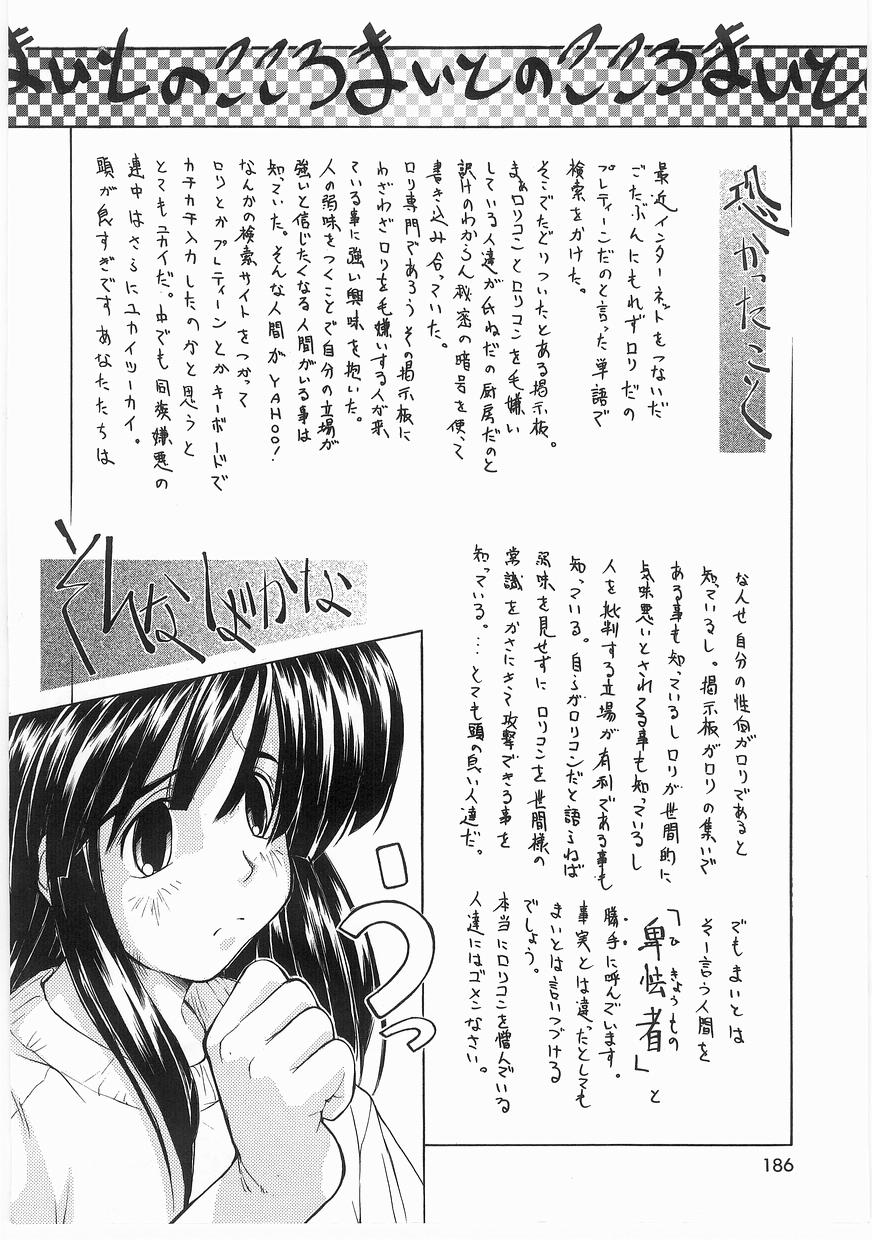 まいとのこころまいとのこころまいと
恐かったこと
最近インターネットをつないだ
ごたぶんにもれずロリだの
プレティーンだのと言った単語で
検索をかけた。
そこでたどりついたとある掲示板。
まぁロリコンとロリコンを毛嫌い
している人達が氏ねだの厨房だのと
訳けのわからん秘密の暗号を使って
書き込み合っていた。
ロリ専門であろうその掲示板に
わざわざロリを毛嫌いする人が来
ている事に強い興味を抱いた。
人の弱味をつくことで自分の立場が
強いと信じたくなる人間がいる事は
知っていた。そんな人間がYAHOO!
なんかの検索サイトをつかって
ロリとかプレティーンとかキーボードで
カチカチ入力したのかと思うと
とてもユカイだ。中でも同族嫌悪の
連中はさらにユカイツーカイ。
頭が良すぎですあなたたちは
な人せ自分の性向がロリであると
知っているし。掲示板がロリの集いで
ある事も知っているしロリが世間的に
気味悪いとされてる事も知っているし
人を批判する立場が有利である事も
知っている。自らがロリコンだと語らねば
弱味を見せずにロリコンを世間様の
常識をかさにきて攻撃できる事を
知っている。…とても頭の良い人達だ。
でもまいとは
そー言う人間を
「卑怯者」と
ひきょうもの
勝手に呼んでいます。
事実とは違ったとしても
まいとは言いつづける
でしょう。
本当にロリコンを憎んでいる
人達にはゴメンなさい。
そんなばかな
？っ
186